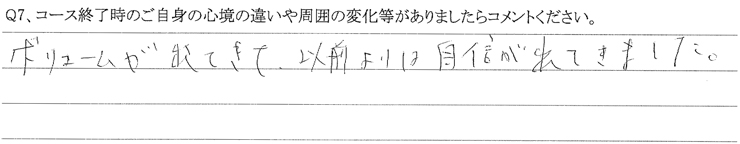 Q7、コース終了時のご自身の心境の違いや周囲の変化等がありましたらコメントください。
ボリュームが出てきて、以前よりは自信が出てきました。